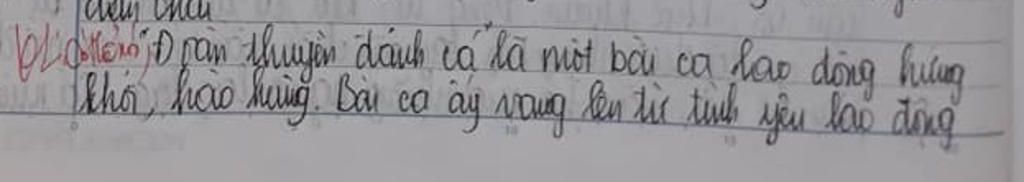 "Đoàn thuyền đánh cá" là một bài ca lao động hứng
khởi, hào hùng. Bài ca ấy vang lên từ tình yêu lao động